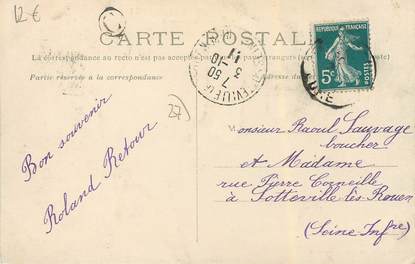 12€
CARTE POSTALE
La correspondance au recto n'est pas acceptée
Partie réservée à la correspondance
RÉPUBLIQUE FRANÇAISE
5c
POSTES
27
Bon souvenir
Roland Retour
Monsieur Raoul Sauvage
boucher
et Madame
rue Pierre Corneille
à Sotteville lès Rouen
(Seine Infre)